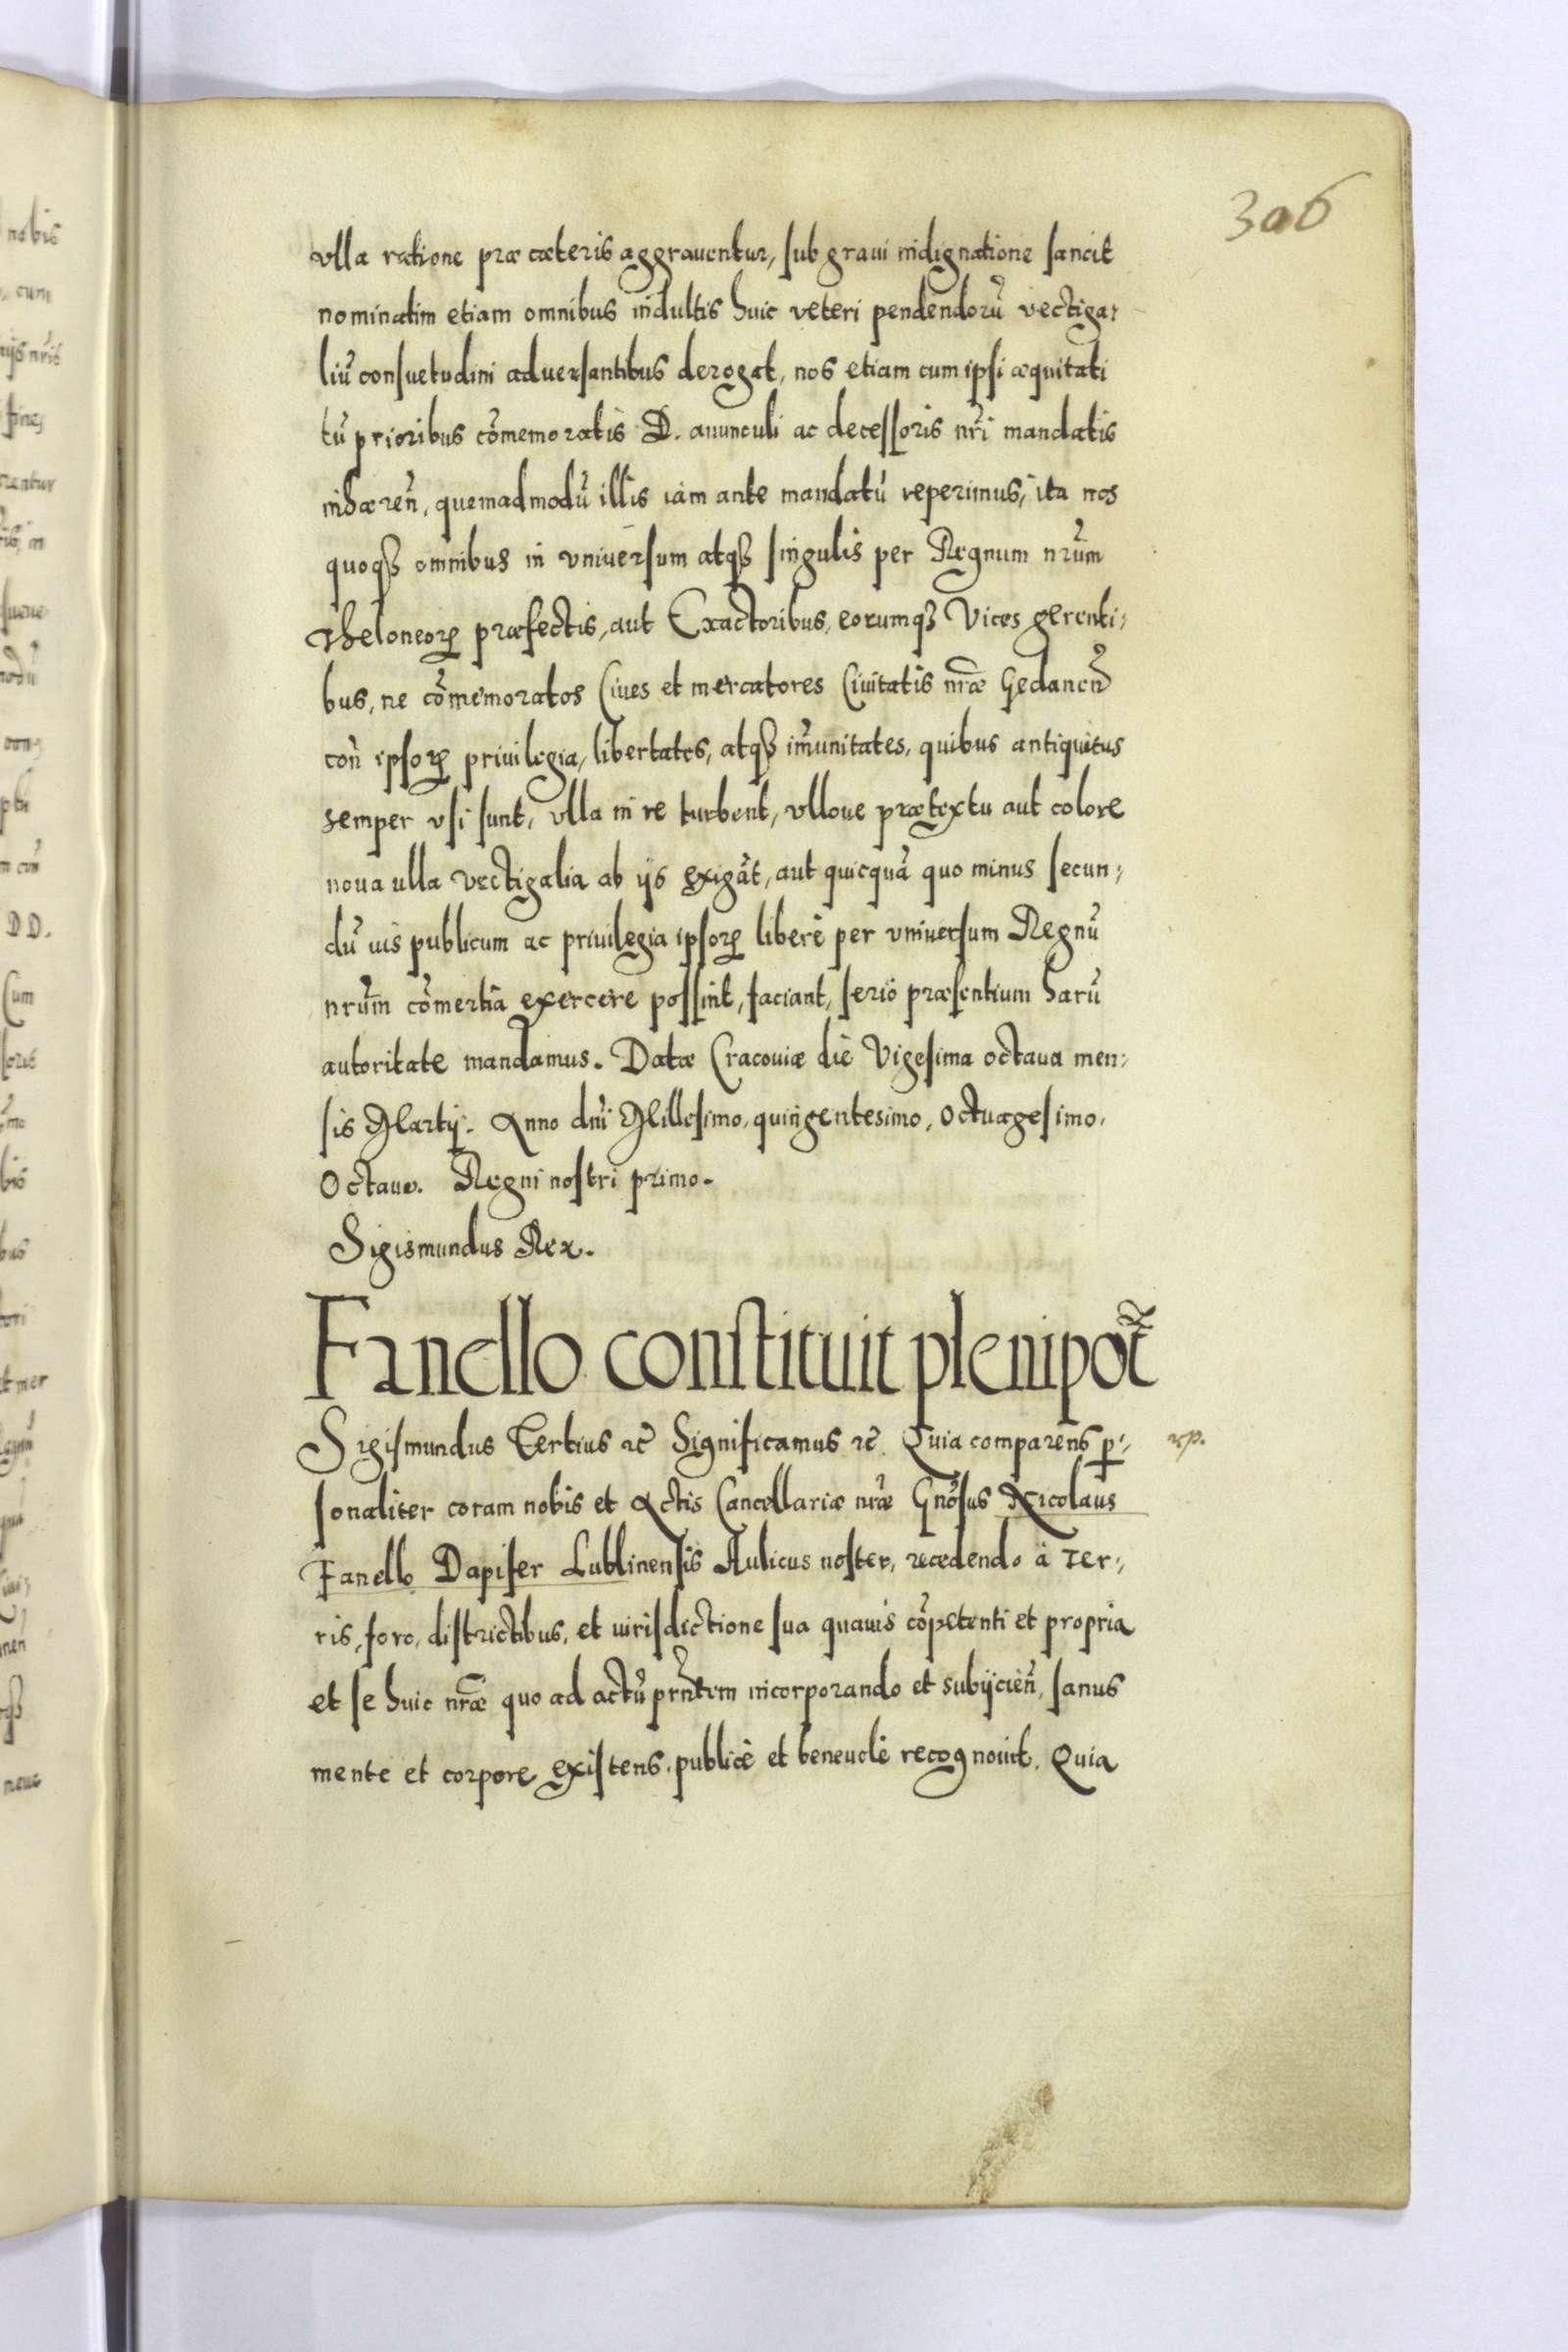 306
vlla ratione præ cæteris aggrauentur, sub graui indignatione sancit
nominatim etiam omnibus indultis huic veteri pendendorũ vectiga,
liũ consuetudini aduersantibus derogat, nos etiam cum ipsi æquitati
tũ prioribus cõmemoratis D. auunculi ac decessoris nr̃i mandatis
inhæreñ, quemadmodũ illis iam ante mandatũ reperimus, ita nos
quoqȝ omnibus in vniuersum atqȝ singulis per Regnum nr̃um
Theloneoꝝ præfectis, aut Exactoribus, eorumqȝ Vices gerenti,
bus, ne cõmemoratos Ciues et mercatores Ciuitatis nr̃æ Gedaneñ
coñ ipsoꝝ priuilegia, libertates, atqȝ im̃unitates, quibus antiquitus
semper vsi sunt, vlla in re turbent, vlloue prætextu aut colore
noua ulla vectigalia ab ijs exigãt, aut quicquã quo minus secun,
dũ ius publicum ac priuilegia ipsoꝝ liberè per vniuersum Regnũ
nr̃um cõmertia exercere possint, faciant, seriò præsentium harũ
autoritate mandamus. Datæ Cracouiæ die Vigesima octaua men,
sis Martij. Anno dñi Millesimo, quingentesimo, Octuagesimo,
Octauo. Regni nostri primo.
Sigismundus Rex.
Fanello constituit plenipot̃
Sigismundus Tertius etc̃ Significamus etc̃ Quia comparens ꝑ,
sonaliter coram nobis et Actis Cancellariæ nr̃æ Gnõsus Nicolaus
Fanello Dapifer Lublinensis Aulicus noster, recedendo à Ter,
ris, foro, districtibus, et iurisdictione sua quauis cõpetenti et propria
et se huic nr̃æ quo ad actũ prñtem incorporando et subijcieñ, sanus
mente et corpore existens, publicè et beneuolè recognouit. Quia